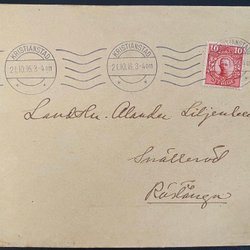 KRISTIANSTAD
21.10.16.3-4 em
KRISTIANSTAD
21.10.16.3-4 em
10 10
Landthr. Alander Liljenber
Snälleröd
Röstånga